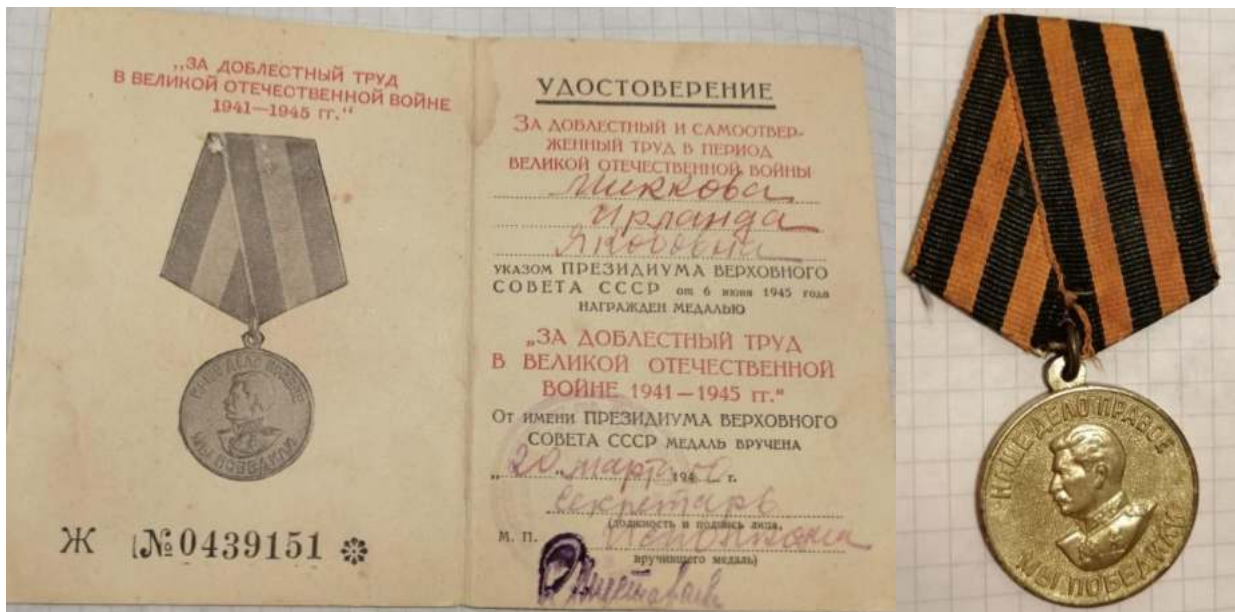 „ЗА ДОБЛЕСТНЫЙ ТРУД
В ВЕЛИКОЙ ОТЕЧЕСТВЕННОЙ ВОЙНЕ
1941—1945 гг."
НАШЕ ДЕЛО ПРАВОЕ
МЫ ПОБЕДИЛИ
Ж №0439151
УДОСТОВЕРЕНИЕ
ЗА ДОБЛЕСТНЫЙ И САМООТВЕР-
ЖЕННЫЙ ТРУД В ПЕРИОД
ВЕЛИКОЙ ОТЕЧЕСТВЕННОЙ ВОЙНЫ
Миккова
Ирланда
УКАЗОМ ПРЕЗИДИУМА ВЕРХОВНОГО
СОВЕТА СССР от 6 июня 1945 года
НАГРАЖДЕН МЕДАЛЬЮ
„ЗА ДОБЛЕСТНЫЙ ТРУД
В ВЕЛИКОЙ ОТЕЧЕСТВЕННОЙ
ВОЙНЕ 1941—1945 гг."
От имени ПРЕЗИДИУМА ВЕРХОВНОГО
СОВЕТА СССР МЕДАЛЬ ВРУЧЕНА
„20" март 194 г.
Секретарь
(должность и подпись лица,
М. П.
вручившего медаль)
НАШЕ ДЕЛО ПРАВОЕ
МЫ ПОБЕДИЛИ